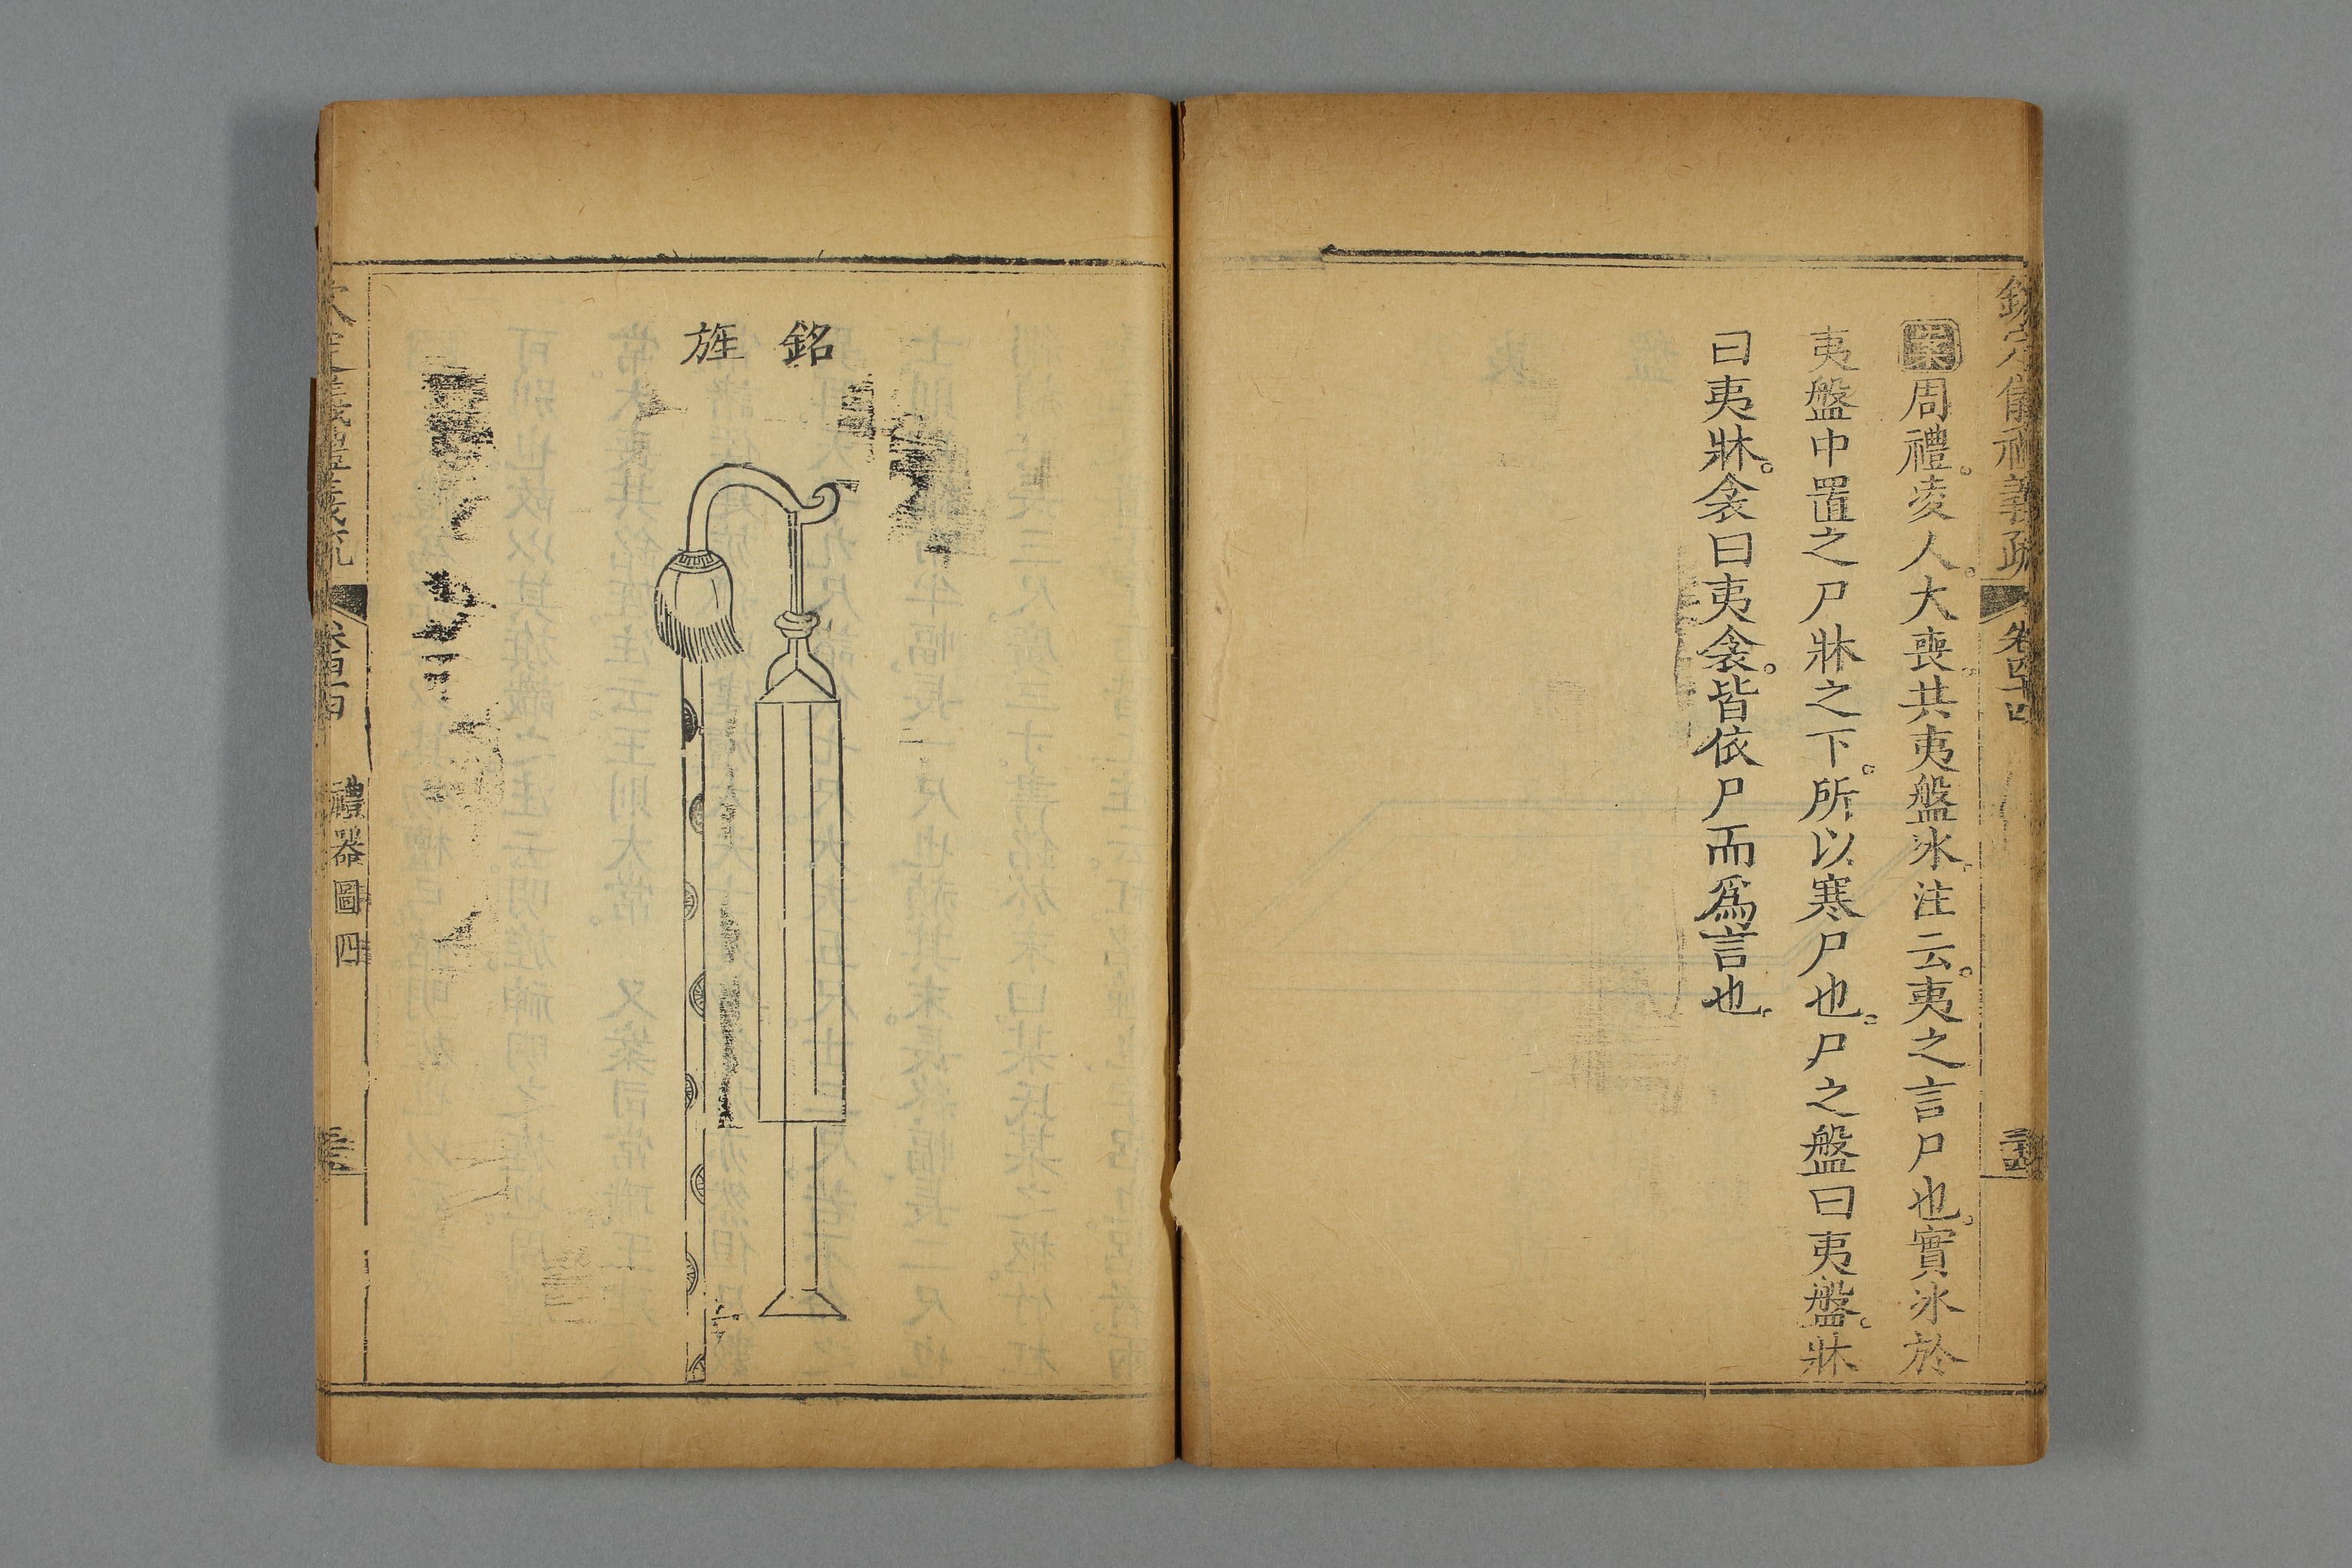 欽定儀禮義疏 卷四十四
案周禮。凌人。大喪。共夷盤冰。注云。夷之言尸也。實冰於
夷盤中置之尸牀之下。所以寒尸也。尸之盤曰夷盤。牀
曰夷牀。衾曰夷衾。皆依尸而為言也。
銘旌
欽定儀禮義疏 卷四十四 禮器圖四